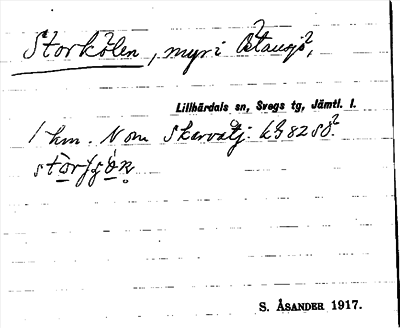 Storkölen, myr i Östansjö,
Lillhärdals sn, Svegs tg, Jämtl. l.
1 km. N om Skarvatj.
S. ÅSANDER 1917.